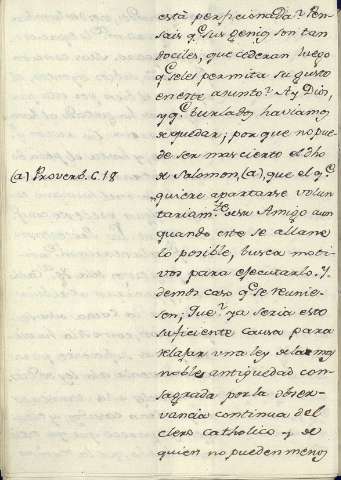 está perficionada? Pen-
sais q.e sus genios son tan
dociles, que cederan luego
q.e seles permita su gusto
en este asunto? Ay Dios,
y q.e burlados haviamos
de quedar; por que no pue-
de ser mas cierto el dho
de Salomon, (a), que el q.e
(a) Proverb. C. 18
quiere apartarse volun-
tariam.te de su Amigo aun
quando este se allane
lo posible, busca moti-
vos para ejecutarlo. Y
demos caso q.e se reunie-
sen; Que? ya seria esto
suficiente causa para
relajar una ley de la mas
noble antiguedad con-
sagrada por la obser-
vancia continua del
clero catholico y de
quien no pueden menos